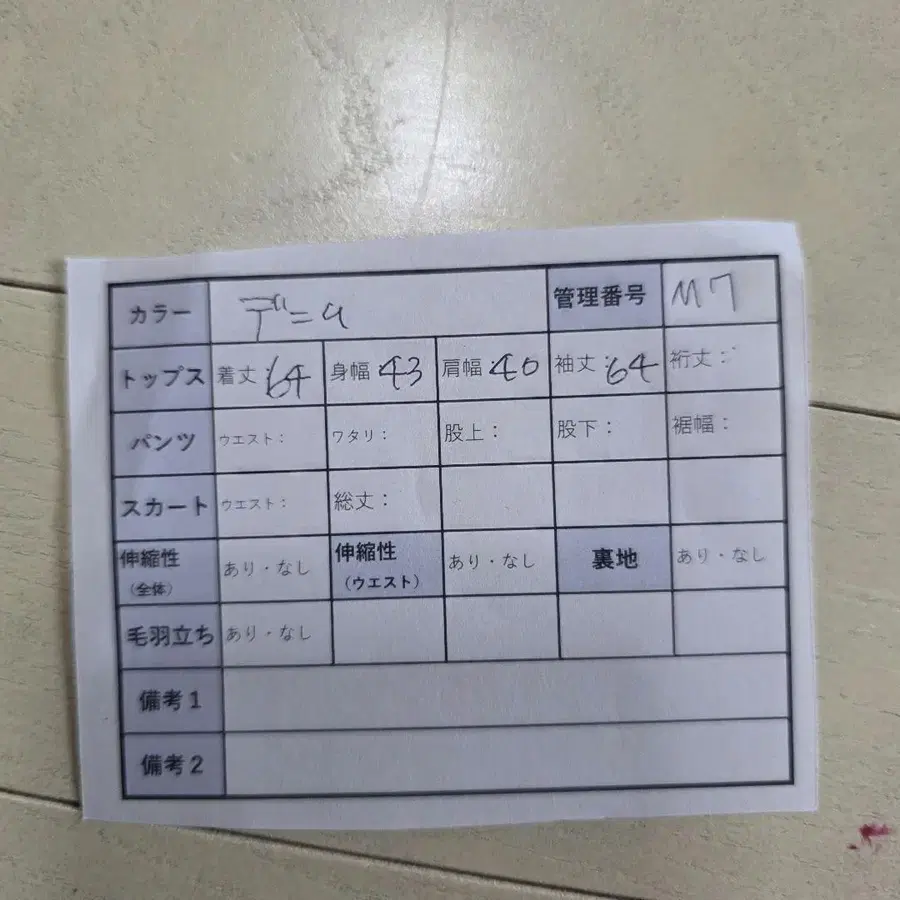 カラー デニム 管理番号 M7
トップス 着丈:64 身幅:43 肩幅:40 袖丈:64 裄丈:
パンツ ウエスト: ワタリ: 股上: 股下: 裾幅:
スカート ウエスト: 総丈:
伸縮性（全体） あり・なし 伸縮性（ウエスト） あり・なし 裏地 あり・なし
毛羽立ち あり・なし
備考1
備考2